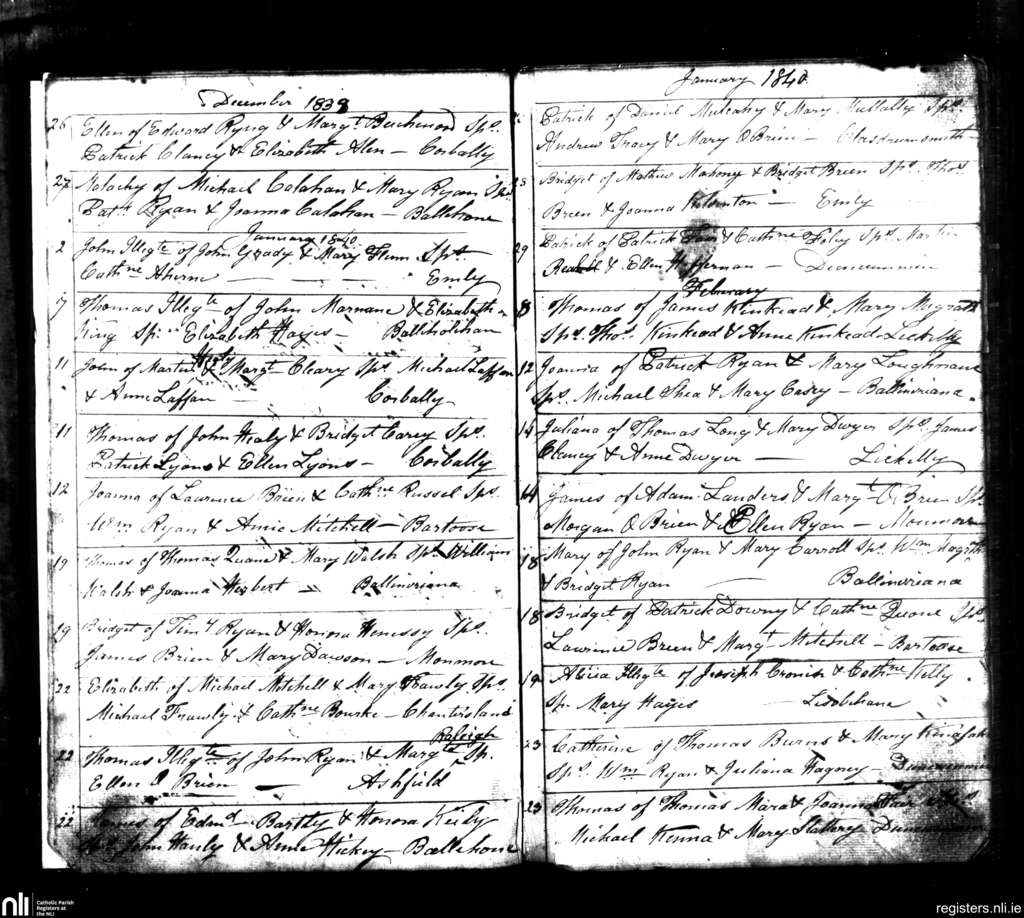 December 1839
26 Ellen of Edward Ryng & Margt. Buckmond Sps.
Patrick Clancy & Elizabeth Alen — Corbally
27 Malachy of Michael Calahan & Mary Ryan Sps.
Patk Ryan & Joanna Calahan — Ballihone
January 1840.
2 John Illegte of John Grady & Mary Flinn Sps.
Cathne Aherne — — Emly
7 Thomas Illegte of John Marnane & Elizabeth
King Sp. Elizabeth Hayes — Balliholahan
11 John of Martin Healy & Margt Cleary Sps. Michael Laffan
& Anne Laffan — Corbally
11 Thomas of John Healy & Bridget Carey Sps.
Patrick Lyons & Ellen Lyons — Corbally
12 Joanna of Laurence Brien & Cathne Russel Sps.
Wm Ryan & Annie Mitchell — Bartoose
19 Thomas of Thomas Quane & Mary Walsh Sps. William
Walsh & Joanna Herbert — Ballinviriana
19 Bridget of Timy Ryan & Honora Henessy Sps.
James Brien & Mary Dawson — Monmore
22 Elizabeth of Michael Mitchell & Mary Frawly Sps.
Michael Frawly & Cathne Bourke — Chantersland
Raleigh
22 Thomas Illegte of John Ryan & Margte Sp.
Ellen O Brien — Ashfield
22 James of Edmd Bartley & Honora Kirby
Sps. John Hanly & Anne Hickey — Ballihone
January 1840
Patrick of Daniel Mulcahy & Mary Mullally Sps.
Andrew Tracy & Mary O Brien — Glasdrumsmith
Bridget of Mathew Mahony & Bridget Breen Sps. Thos
Breen & Joanna — Emly
29 Patrick of Patrick & Cathne Foley Sps. Martin
& Ellen Heffernan — Duncummin
February
8 Thomas of James Kinkead & Mary Magrath
Sps. Thos. Kinkead & Anne Kinkead — Lickelly
12 Joanna of Patrick Ryan & Mary Loughnane
Sps. Michael Shea & Mary Casey — Ballinviriana
14 Juliana of Thomas Long & Mary Dwyer Sps. James
Clancy & Anne Dwyer — Lickelly
14 James of Adam Landers & Margt O Brien Sps.
Morgan O Brien & Ellen Ryan — Monmore
18 Mary of John Ryan & Mary Carroll Sps. Wm Magrath
& Bridget Ryan — Ballinviriana
18 Bridget of Patrick Downy & Cathne Quane Sps.
Lawrence Breen & Margt Mitchell — Bartoose
19 Alicia Illegte of Joseph Cronin & Cathne Kelly
Sp. Mary Hayes — Lisobihane
23 Catherine of Thomas Burns & Mary
Sps. Wm Ryan & Juliana Hagney — Duncummin
23 Thomas of Thomas Mara & Joanna
Michael Kenna & Mary Slattery Duncummin
nli
Catholic Parish
Registers at
the NLI
registers.nli.ie